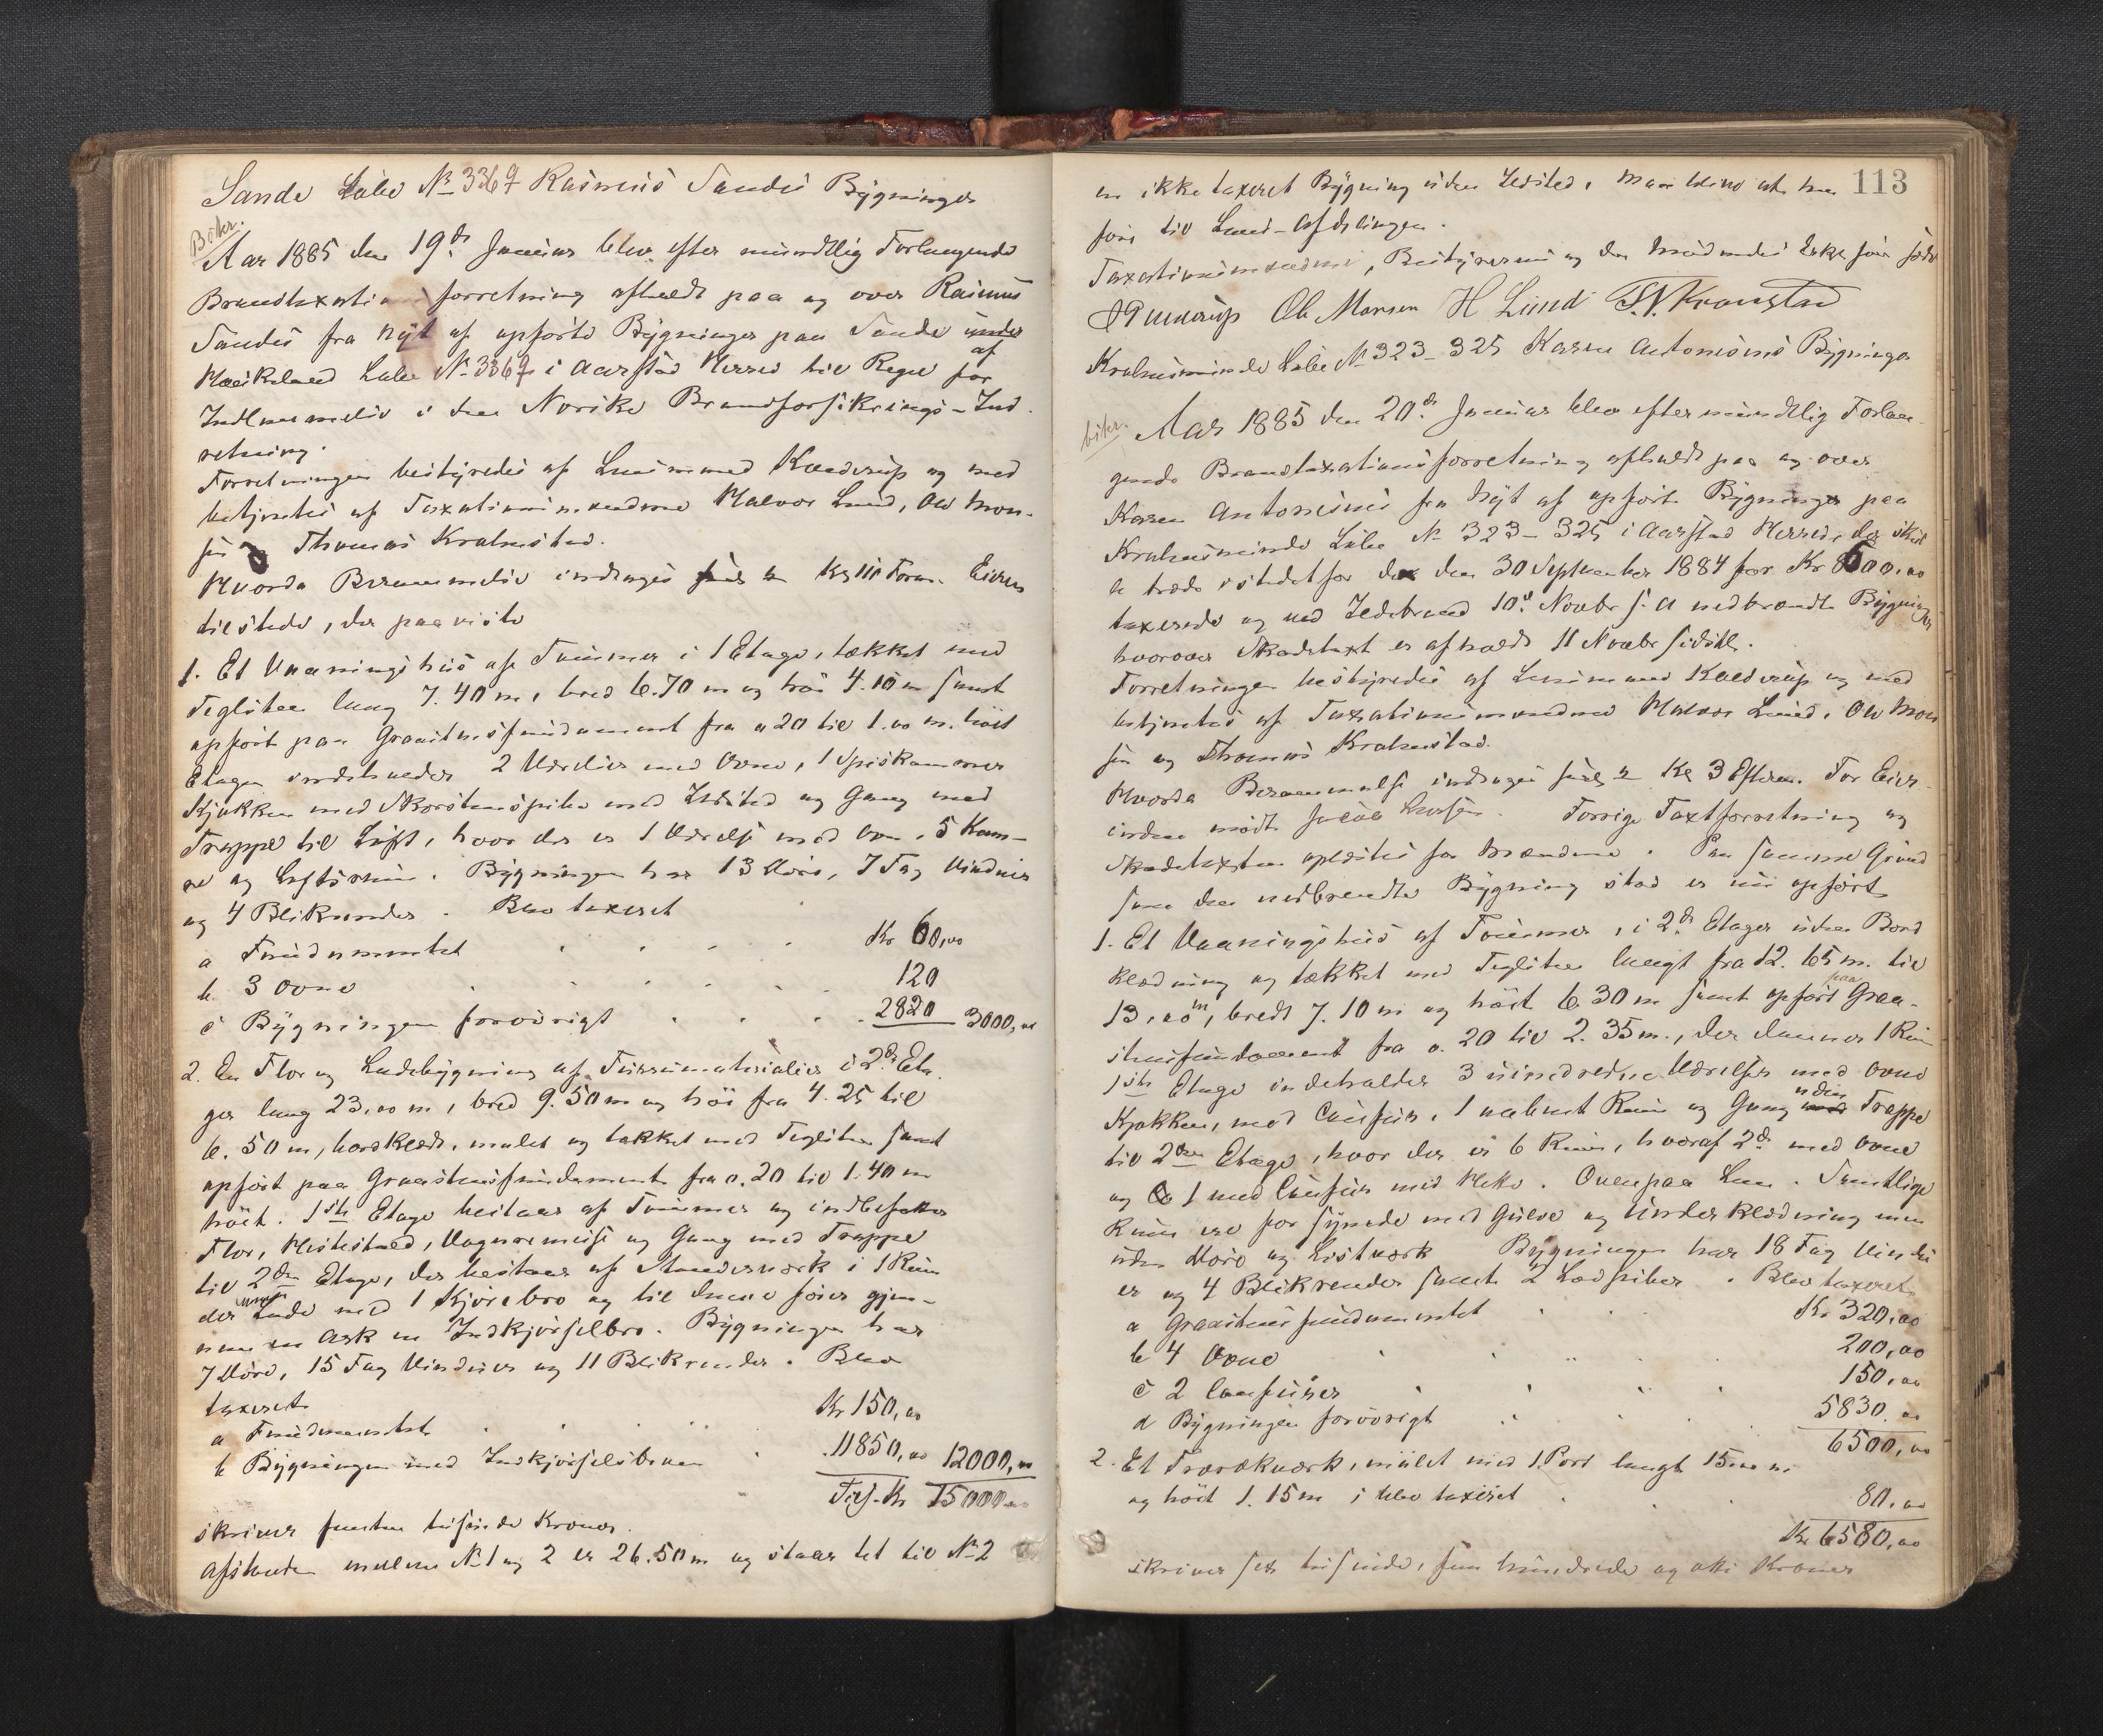 Sande Løbe No 3367 Rasmus Sandes Bygninger
Bokr.
Aar 1885 den 19de Januar blev efter mundtlig Forlangende
Brandtaxations forretning afholdt paa og over Rasmus
Sandes fra nyt af opførte Bygninger paa Sande under
Haukeland Løbe No 3367 i Aarstad Herred til Regel for
af
Indlemmelse i den Norske Brandforsikrings-Ind
retning.
Forretningen bestyredes af Lensmand Kaldrup og med
betjentes af Taxationsmændene Halvor Lund, Ole Mon-
sen Thomas Krohnstad.
Hvorda Berammelse indtages Kl 11 Form. Eieren
tilstede, der paaviste
1. Et Vaaningshus af Tømmer i 1 Etage, tækket med
Teglsten lang 7.40 m, bred 6.70 m og høi 4.10 m samt
opført paa Graastensfundament fra 0.20 til 1.00 m. høit
Etagen indeholder 2 Værelser med Ovne, 1 Spiskammer
Kjøkken med Skorstenspibe med Ildsted og Gang med
Trappe til Loft, hvor der er 1 Værelse med Ovn, 5 Kam-
re og Loftsrum. Bygningen har 13 Døre, 7 Fag Vinduer
og 4 Blikrender. Blev taxeret
a Fundamentet Kr 60,00
b. 3 Ovne 120
c Bygningen forøvrigt 2820 3000,00
2. En Flor og Ladebygning af Tømmermaterialier i 2de Eta.
ger lang 23.00 m, bred 9.50 m og høi fra 4.25 til
6.50 m, bordklædt, malet og tækket med Teglsten samt
opført paa Graastensfundament fra 0.20 til 1.40 m
høit. 1ste Etage bestaar af Tømmer og indbefatter
Flor, Hestestald, Vognremise og Gang med Trappe
til 2den Etage, der bestaar af Stenderværk i 1 Rum
der Lade med 1 Kjørebro og til denne fører gjen-
nem en Ark en Indkjørselbro. Bygningen har
7 Døre, 15 Fag Vinduer og 11 Blikrender. Blev
taxeret
a Fundamentet Kr 150,00
b Bygningen med Indkjørselsbroen 11850,00 12000,00
Tils. Kr 15000,00
skriver femten tusinde Kroner.
Afstanden mellem No 1 og 2 er 26.50 m og staar tet til No 2
113
en ikke taxeret Bygning uden Ildsted,
føres til Land-Afdelingen.
Taxationsmændene, Bestyreren
Ole Monsen H Lund T. N. Kronstad
Krohnsminde Løbe No 323-325 Karen Antonisens Bygninger
bokr.
Aar 1885 den 20de Januar blev efter mundtlig Forlan-
gende Brandtaxationsforretning afholdt paa og over
Karen Antonisens fra nyt af opførte Bygninger paa
Krohnsminde Løbe No 323-325 i Aarstad Herred, der skul
de træde istedetfor den 30 September 1884 for Kr
taxerede og ved Ildebrand 10de Novbr f. A nedbrændte Bygninger
hvorover Skadetaxt er afholdt 11 Novbr sidstl.
Forretningen bestyredes af Lensmand Kaldrup og med
betjentes af Taxationsmændene Halvor Lund, Ole Mon
sen og Thomas Krohnstad.
Hvorda Berammelse indtages Kl 3 Efterm. For Eier-
inden mødte Jacob Larsen. Forrige Taxtforretning og
Skadetaxten oplæstes for Mændene. Paa samme Grund
som den nedbrændte Bygning stod er nu opført
1. Et Vaaningshus af Tømmer, i 2de Etager uden Bord
klædning og tækket med Teglsten langt fra 12.65 m. til
13.00 m, bredt 7.10 m og høit 6.30 m samt opført paa Graa-
stensfundament fra 0.20 til 2.35 m., der danner 1 Rum
1ste Etage indeholder 3 uindredte Værelser med Ovne
Kjøkken, med Comfur, 1 aabent Rum og Gang uden Trappe
til 2den Etage, hvor der er 6 Rum, hvoraf 2de med Ovne
og 1 med Comfur. Ovenpaa Lem. Samtlige
Rum ere forsynede med Gulve og Underklædning men
uden Døre og Listværk Bygningen har 18 Fag Vindu
er og 4 Blikrender samt 2 Lodpiber. Blev taxeret
a Graastensfundamentet Kr 320,00
b 4 Ovne 200,00
c 2 Comfurer 150,00
d Bygningen forøvrigt 5830,00
6500,00
2. Et Trærækværk, malet med 1 Port langt 15.00 m
og høit 1.15 m, blev taxeret 80,00
Kr 6580,00
skriver sex tusinde, fem hundrede og otti Kroner